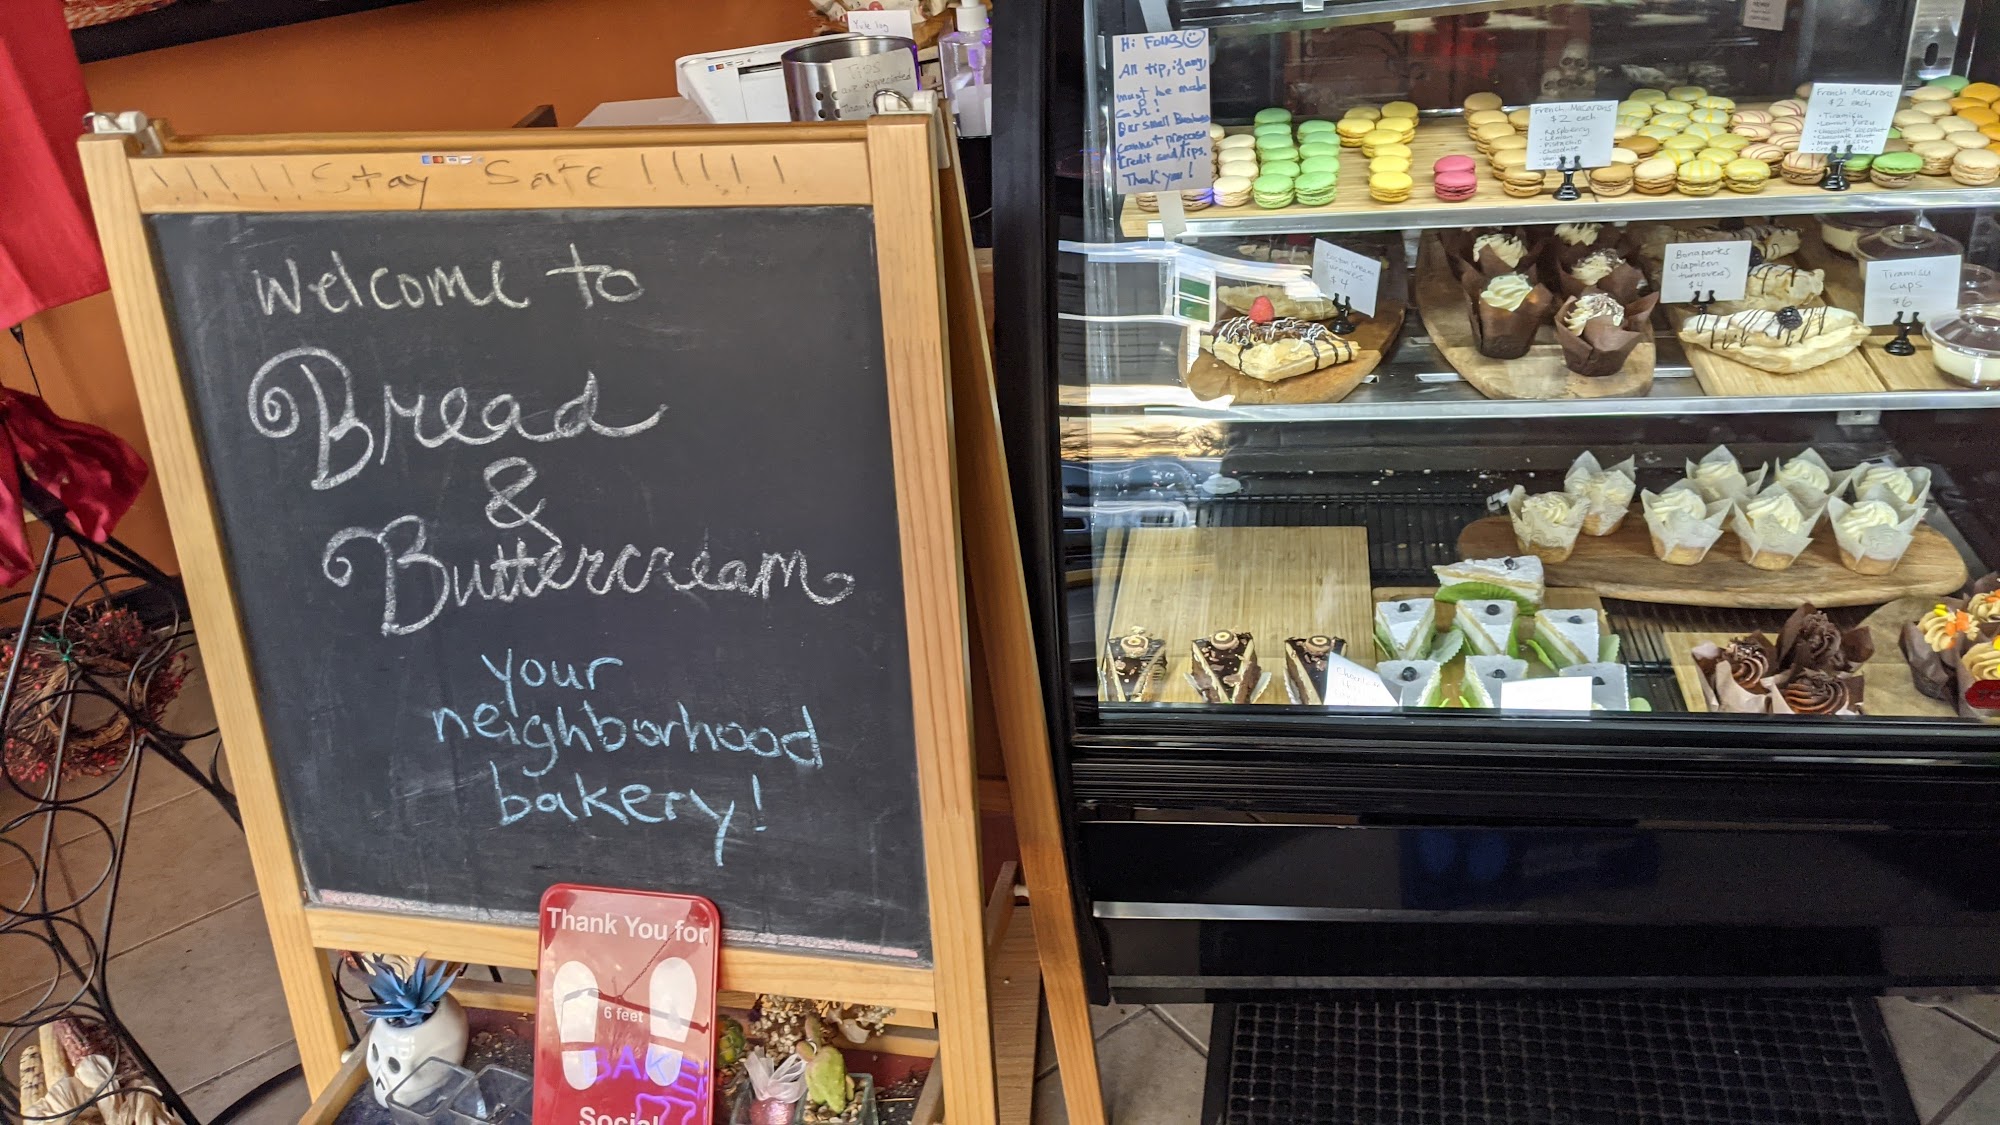 !!!!!! Stay Safe !!!!!
Welcome to
Bread
&
Buttercream
your
neighborhood
bakery!
Thank You for
6 feet
BAKE
Social
Yule log
Tips
are appreciated
Thank
Hi Folks
All tip, if any,
must be made
Cash!
Our Small Business
cannot process
Credit card tips.
Thank you!
French Macarons
$2 each
• Raspberry
• Lemon
• Pistachio
• Chocolate
French Macarons
$2 each
• Tiramisu
• Lemon Yuzu
• Chocolate Coconut
• Chocolate Mint
Boston Cream
Turnovers
$4
Bonaparts
(Napoleon
turnovers)
$4
Tiramisu
cups
$6
Chocolate